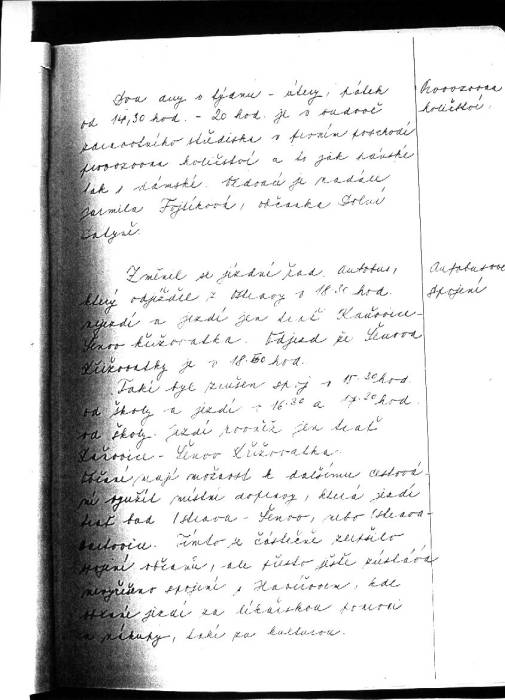 Dva dny v týdnu - úterý, pátek
od 14,30 hod. - 20 hod. je v budově
zdravotního střediska v prvním poschodí
provozovna holičství a to jak pánské
tak i dámské. Vedoucí je nadále
Jarmila Fojtíková, občanka Dolní
Datyně.
Provozovna
holičství.
Změnil se jízdní řád. Autobus,
který odjížděl z Ostravy v 18.30 hod.
nejezdí a jezdí jen trať
Šenov křižovatka. Odjezd ze Šenova
Křižovatky je v hod.
Také byl zrušen spoj v 15.30 hod.
od školy a jezdí v 16.30 a 17.20 hod.
od školy. Jezdí rovněž jen trať
- Šenov Křižovatka.
Občané mají možnost k dalšímu cestová-
ní využít místní dopravy, která jezdí
trať Ostrava - Šenov, nebo Ostrava
Tímto se částečně zlepšilo
spojení občanů, ale přesto ještě zůstává
nevyřešeno spojení s Havířovem, kde
občané jezdí za lékařskou pomocí
a nákupy, také za kulturou.
Autobusové
spojení